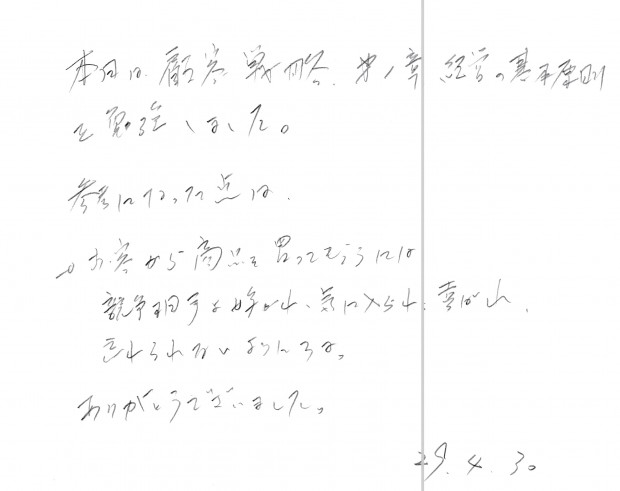 本日は、顧客戦略、第1章 経営の基本原則
を勉強しました。
参考になった点は、
お客から商品を買ってもらうには
競争相手よりか、気に入られ、喜ばれ、
忘れられないようにする。
ありがとうございました。
29.4.30